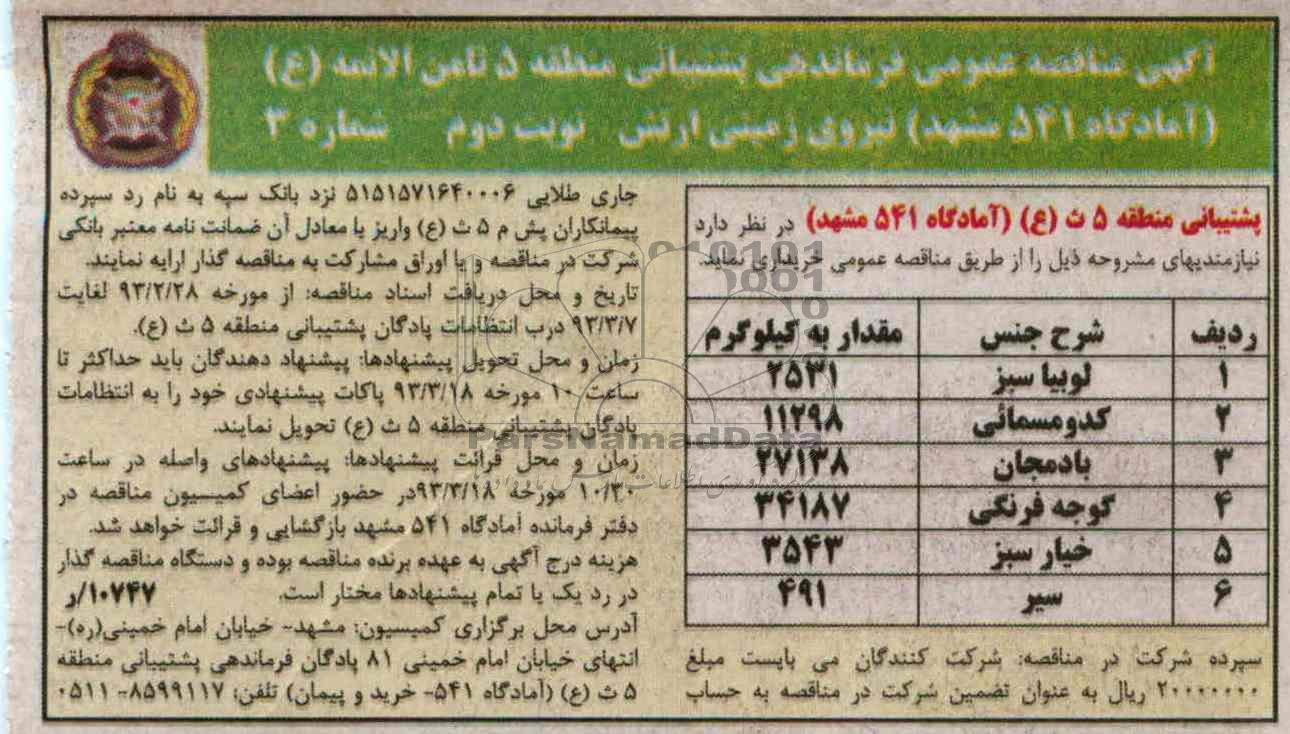 آگهی مناقصه عمومی فرماندهی پشتیبانی منطقه ۵ ثامن الائمه (ع)
(آمادگاه ۵۴۱ مشهد) نیروی زمینی ارتش نوبت دوم شماره ۳
پشتیبانی منطقه ۵ ث (ع) (آمادگاه ۵۴۱ مشهد) در نظر دارد
نیازمندیهای مشروحه ذیل را از طریق مناقصه عمومی خریداری نماید.
ردیف شرح جنس مقدار به کیلوگرم
۱ لوبیا سبز ۲۵۳۱
۲ کدومسمائی ۱۱۲۹۸
۳ بادمجان ۲۷۱۳۸
۴ گوجه فرنگی ۳۴۱۸۷
۵ خیار سبز ۳۵۴۳
۶ سیر ۴۹۱
سپرده شرکت در مناقصه: شرکت کنندگان می بایست مبلغ
۲۰۰۰۰۰۰۰ ریال به عنوان تضمین شرکت در مناقصه به حساب
جاری طلایی ۵۱۵۱۵۷۱۶۴۰۰۰۶ نزد بانک سپه به نام رد سپرده
پیمانکاران پش م ۵ ث (ع) واریز یا معادل آن ضمانت نامه معتبر بانکی
شرکت در مناقصه و یا اوراق مشارکت به مناقصه گذار ارایه نمایند.
تاریخ و محل دریافت اسناد مناقصه: از مورخه ۹۳/۲/۲۸ لغایت
۹۳/۳/۷ درب انتظامات پادگان پشتیبانی منطقه ۵ ث (ع).
زمان و محل تحویل پیشنهادها: پیشنهاد دهندگان باید حداکثر تا
ساعت ۱۰ مورخه ۹۳/۳/۱۸ پاکات پیشنهادی خود را به انتظامات
پادگان پشتیبانی منطقه ۵ ث (ع) تحویل نمایند.
زمان و محل قرائت پیشنهادها: پیشنهادهای واصله در ساعت
۱۰/۳۰ مورخه ۹۳/۳/۱۸در حضور اعضای کمیسیون مناقصه در
دفتر فرمانده آمادگاه ۵۴۱ مشهد بازگشایی و قرائت خواهد شد.
هزینه درج آگهی به عهده برنده مناقصه بوده و دستگاه مناقصه گذار
در رد یک یا تمام پیشنهادها مختار است. ۱۰۷۴۷/ر
آدرس محل برگزاری کمیسیون: مشهد- خیابان امام خمینی(ره)-
انتهای خیابان امام خمینی ۸۱ پادگان فرماندهی پشتیبانی منطقه
۵ ث (ع) (آمادگاه ۵۴۱- خرید و پیمان) تلفن: ۸۵۹۹۱۱۷- ۰۵۱۱
ParsNamadData